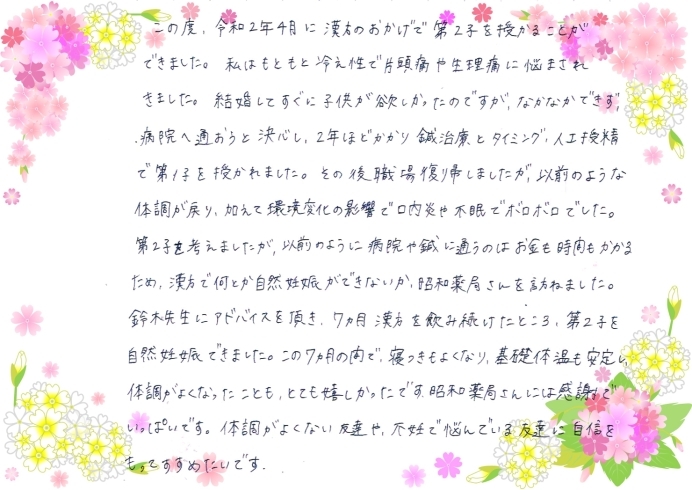 この度、令和2年4月に漢方のおかげで第2子を授かることが
できました。私はもともと冷え性で片頭痛や生理痛に悩まされ
きました。結婚してすぐに子供が欲しかったのですが、なかなかできず、
病院へ通おうと決心し、2年ほどかかり鍼治療とタイミング、人工授精
で第1子を授かれました。その後職場復帰しましたが、以前のような
体調が戻り、加えて環境変化の影響で口内炎や不眠でボロボロでした。
第2子を考えましたが、以前のように病院や鍼に通うのはお金も時間もかかる
ため、漢方で何とか自然妊娠ができないか、昭和薬局さんを訪ねました。
鈴木先生にアドバイスを頂き、7カ月漢方を飲み続けたところ、第2子を
自然妊娠できました。この7カ月の内で、寝つきもよくなり、基礎体温も安定し、
体調がよくなったことも、とても嬉しかったです。昭和薬局さんには感謝で
いっぱいです。体調がよくない友達や、不妊で悩んでいる友達に自信を
もってすすめたいです。